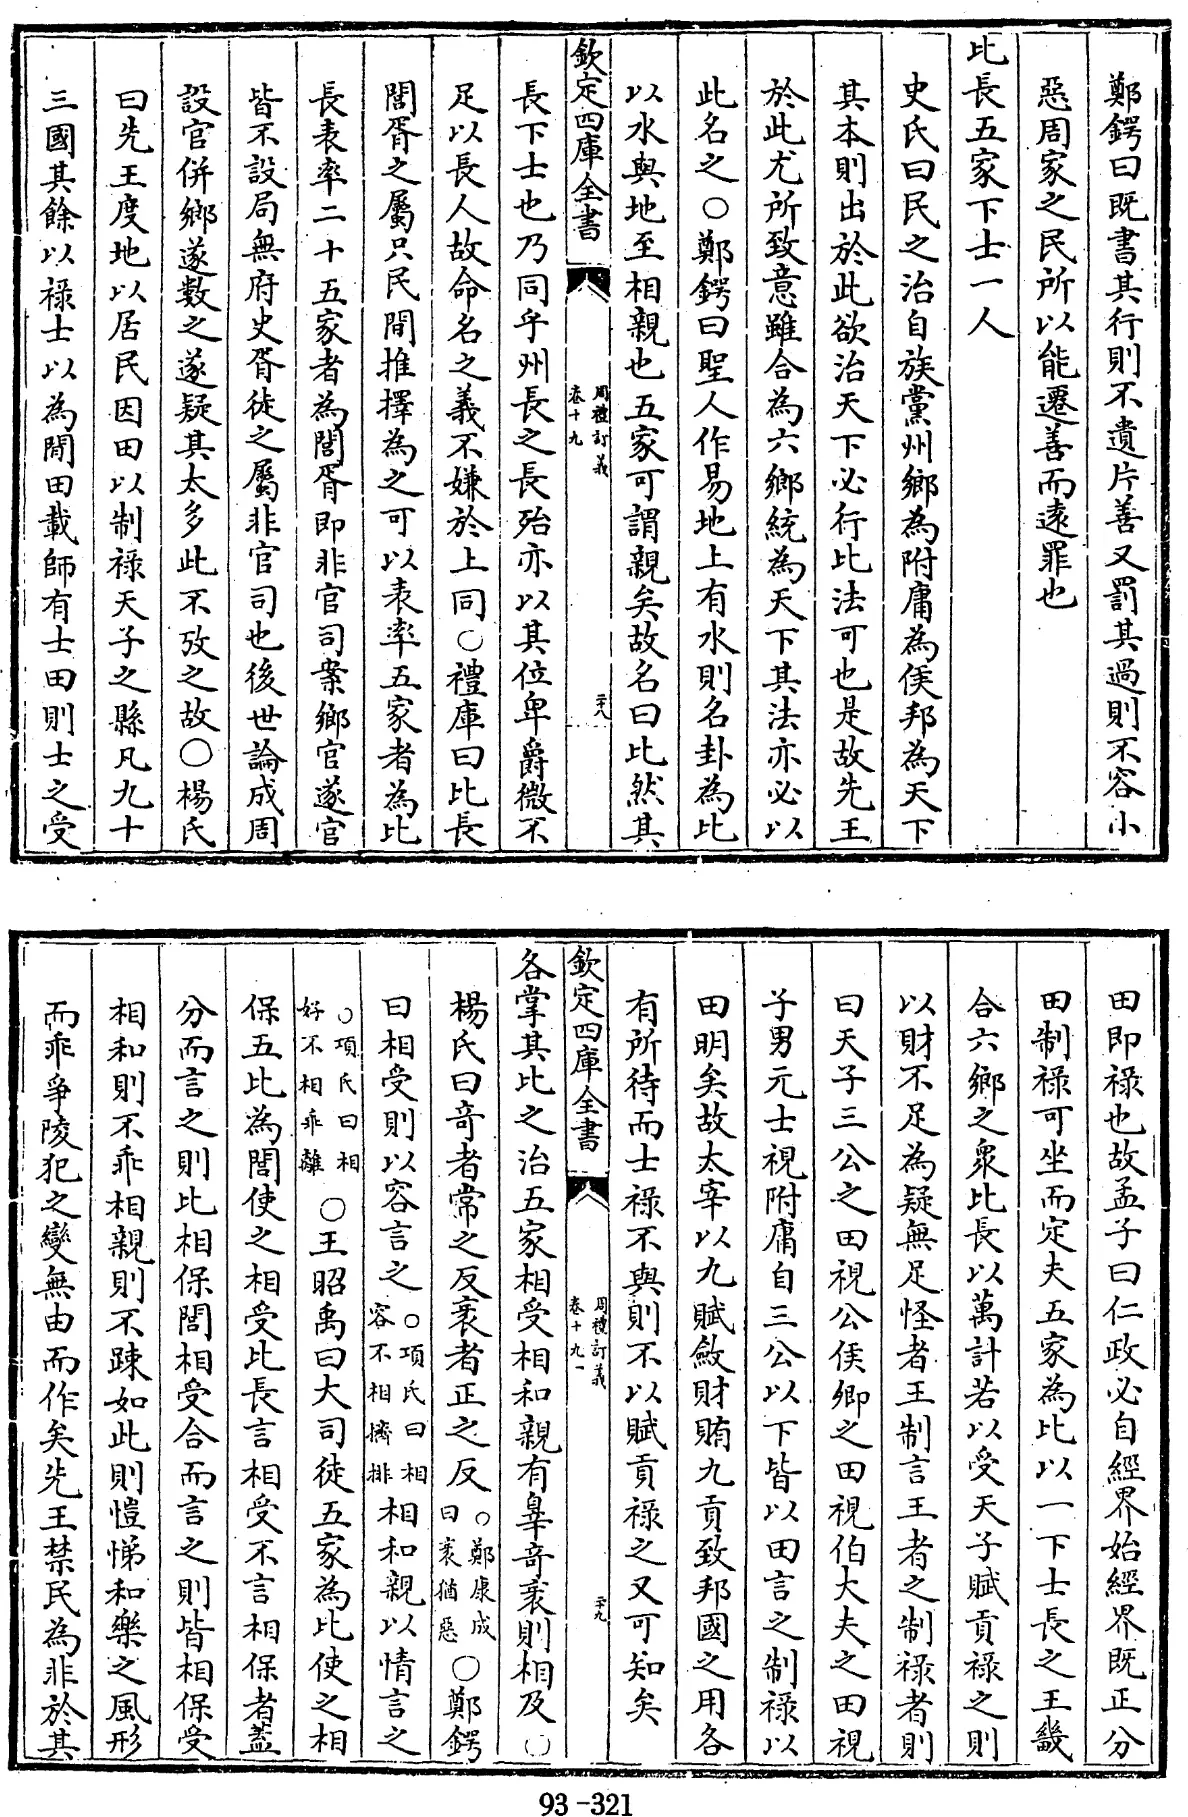 鄭鍔曰既書其行則不遺片善又罰其過則不容小
惡周家之民所以能遷善而逺罪也
比長五家下士一人
史氏曰民之治自族黨州鄉為附庸為侯邦為天下
其本則出於此欲治天下必行比法可也是故先王
於此尤所致意雖合為六鄉統為天下其法亦必以
此名之○鄭鍔曰聖人作易地上有水則名卦為比
以水與地至相親也五家可謂親矣故名曰比然其
欽定四庫全書
周禮訂義
卷十九
二十八
長下士也乃同乎州長之長殆亦以其位卑爵微不
足以長人故命名之義不嫌於上同○禮庫曰比長
閭胥之屬只民間推擇為之可以表率五家者為比
長表率二十五家者為閭胥即非官司案鄉官遂官
皆不設局無府史胥徒之屬非官司也後世論成周
設官併鄉遂數之遂疑其太多此不攷之故○楊氏
曰先王度地以居民因田以制祿天子之縣凡九十
三國其餘以祿士以為閒田載師有士田則士之受
田即祿也故孟子曰仁政必自經界始經界既正分
田制祿可坐而定夫五家為比以一下士長之王畿
合六鄉之衆比長以萬計若以受天子賦貢祿之則
以財不足為疑無足怪者王制言王者之制祿者則
曰天子三公之田視公侯卿之田視伯大夫之田視
子男元士視附庸自三公以下皆以田言之制祿以
田明矣故太宰以九賦斂財賄九貢致邦國之用各
有所待而士祿不與則不以賦貢祿之又可知矣
欽定四庫全書
周禮訂義
卷十九
二十九
各掌其比之治五家相受相和親有辠竒衺則相及○
楊氏曰竒者常之反衺者正之反○鄭康成曰衺猶惡○鄭鍔
曰相受則以容言之○項氏曰相容不相擠排相和親以情言之
○項氏曰相好不相乖離○王昭禹曰大司徒五家為比使之相
保五比為閭使之相受比長言相受不言相保者蓋
分而言之則比相保閭相受合而言之則皆相保受
相和則不乖相親則不踈如此則愷悌和樂之風形
而乖爭陵犯之變無由而作矣先王禁民為非於其
93-321